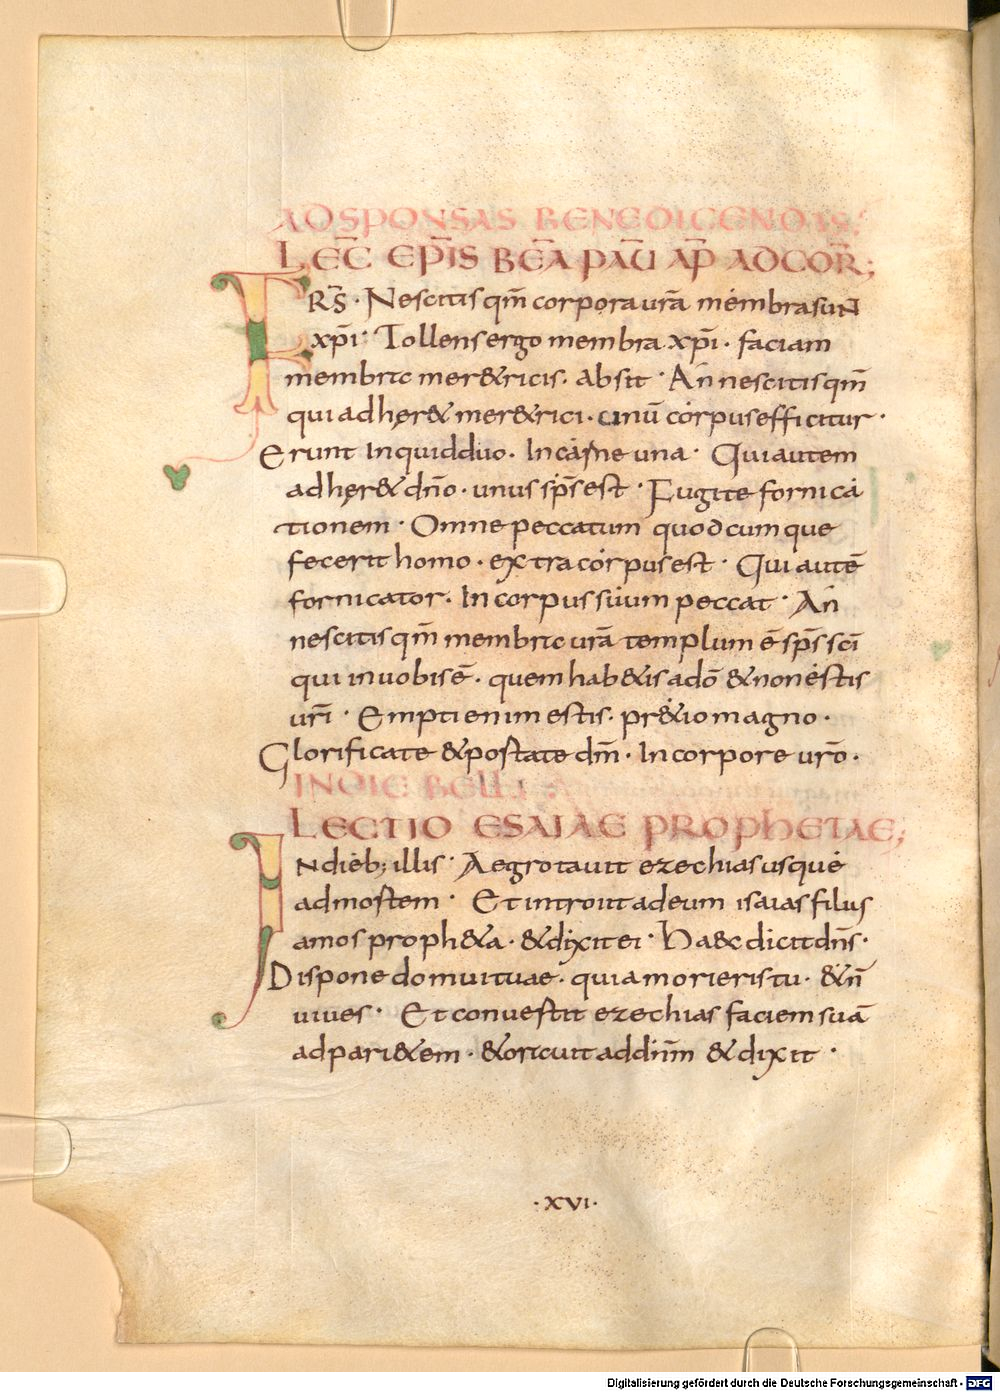 AD SPONSAS BENEDICENDAS;
LEC̄ EP̄IS BĒA PAŪ AP̄ AD COR̄;
FRS̄ · Nescitis qm̄ corpora ur̄a membra sunt
xp̄i · Tollens ergo membra xp̄i · faciam
membra mer&ricis · absit · An nescitis qm̄
qui adher& mer&rici · unū corpus efficitur ·
Erunt inquid duo · In carne una · Qui autem
adher& dn̄o · unus sp̄s est · Fugite fornica
tionem · Omne peccatum quodcumque
fecerit homo · extra corpus est · Qui autē
fornicator · In corpus suum peccat · An
nescitis qm̄ membra ur̄a templum ē sp̄s sc̄i
qui in uobis ē · quem hab&is a dō & non estis
ur̄i · Empti enim estis · pr&io magno ·
Glorificate & portate dm̄ · In corpore ur̄o ·
IN DIE BELLI
LECTIO ESAIAE PROPHETAE;
IN dieb; illis · Aegrotauit ezechias usque
ad mortem · Et introiit ad eum isaias filius
amos proph&a · & dixit ei · Haec dicit dn̄s ·
Dispone domui tuae · quia morieris tu · & n̄
uiues · Et conuertit ezechias faciem suā
ad pari&em · & orauit ad dn̄m & dixit ·
· XVI ·
Digitalisierung gefördert durch die Deutsche Forschungsgemeinschaft - DFG